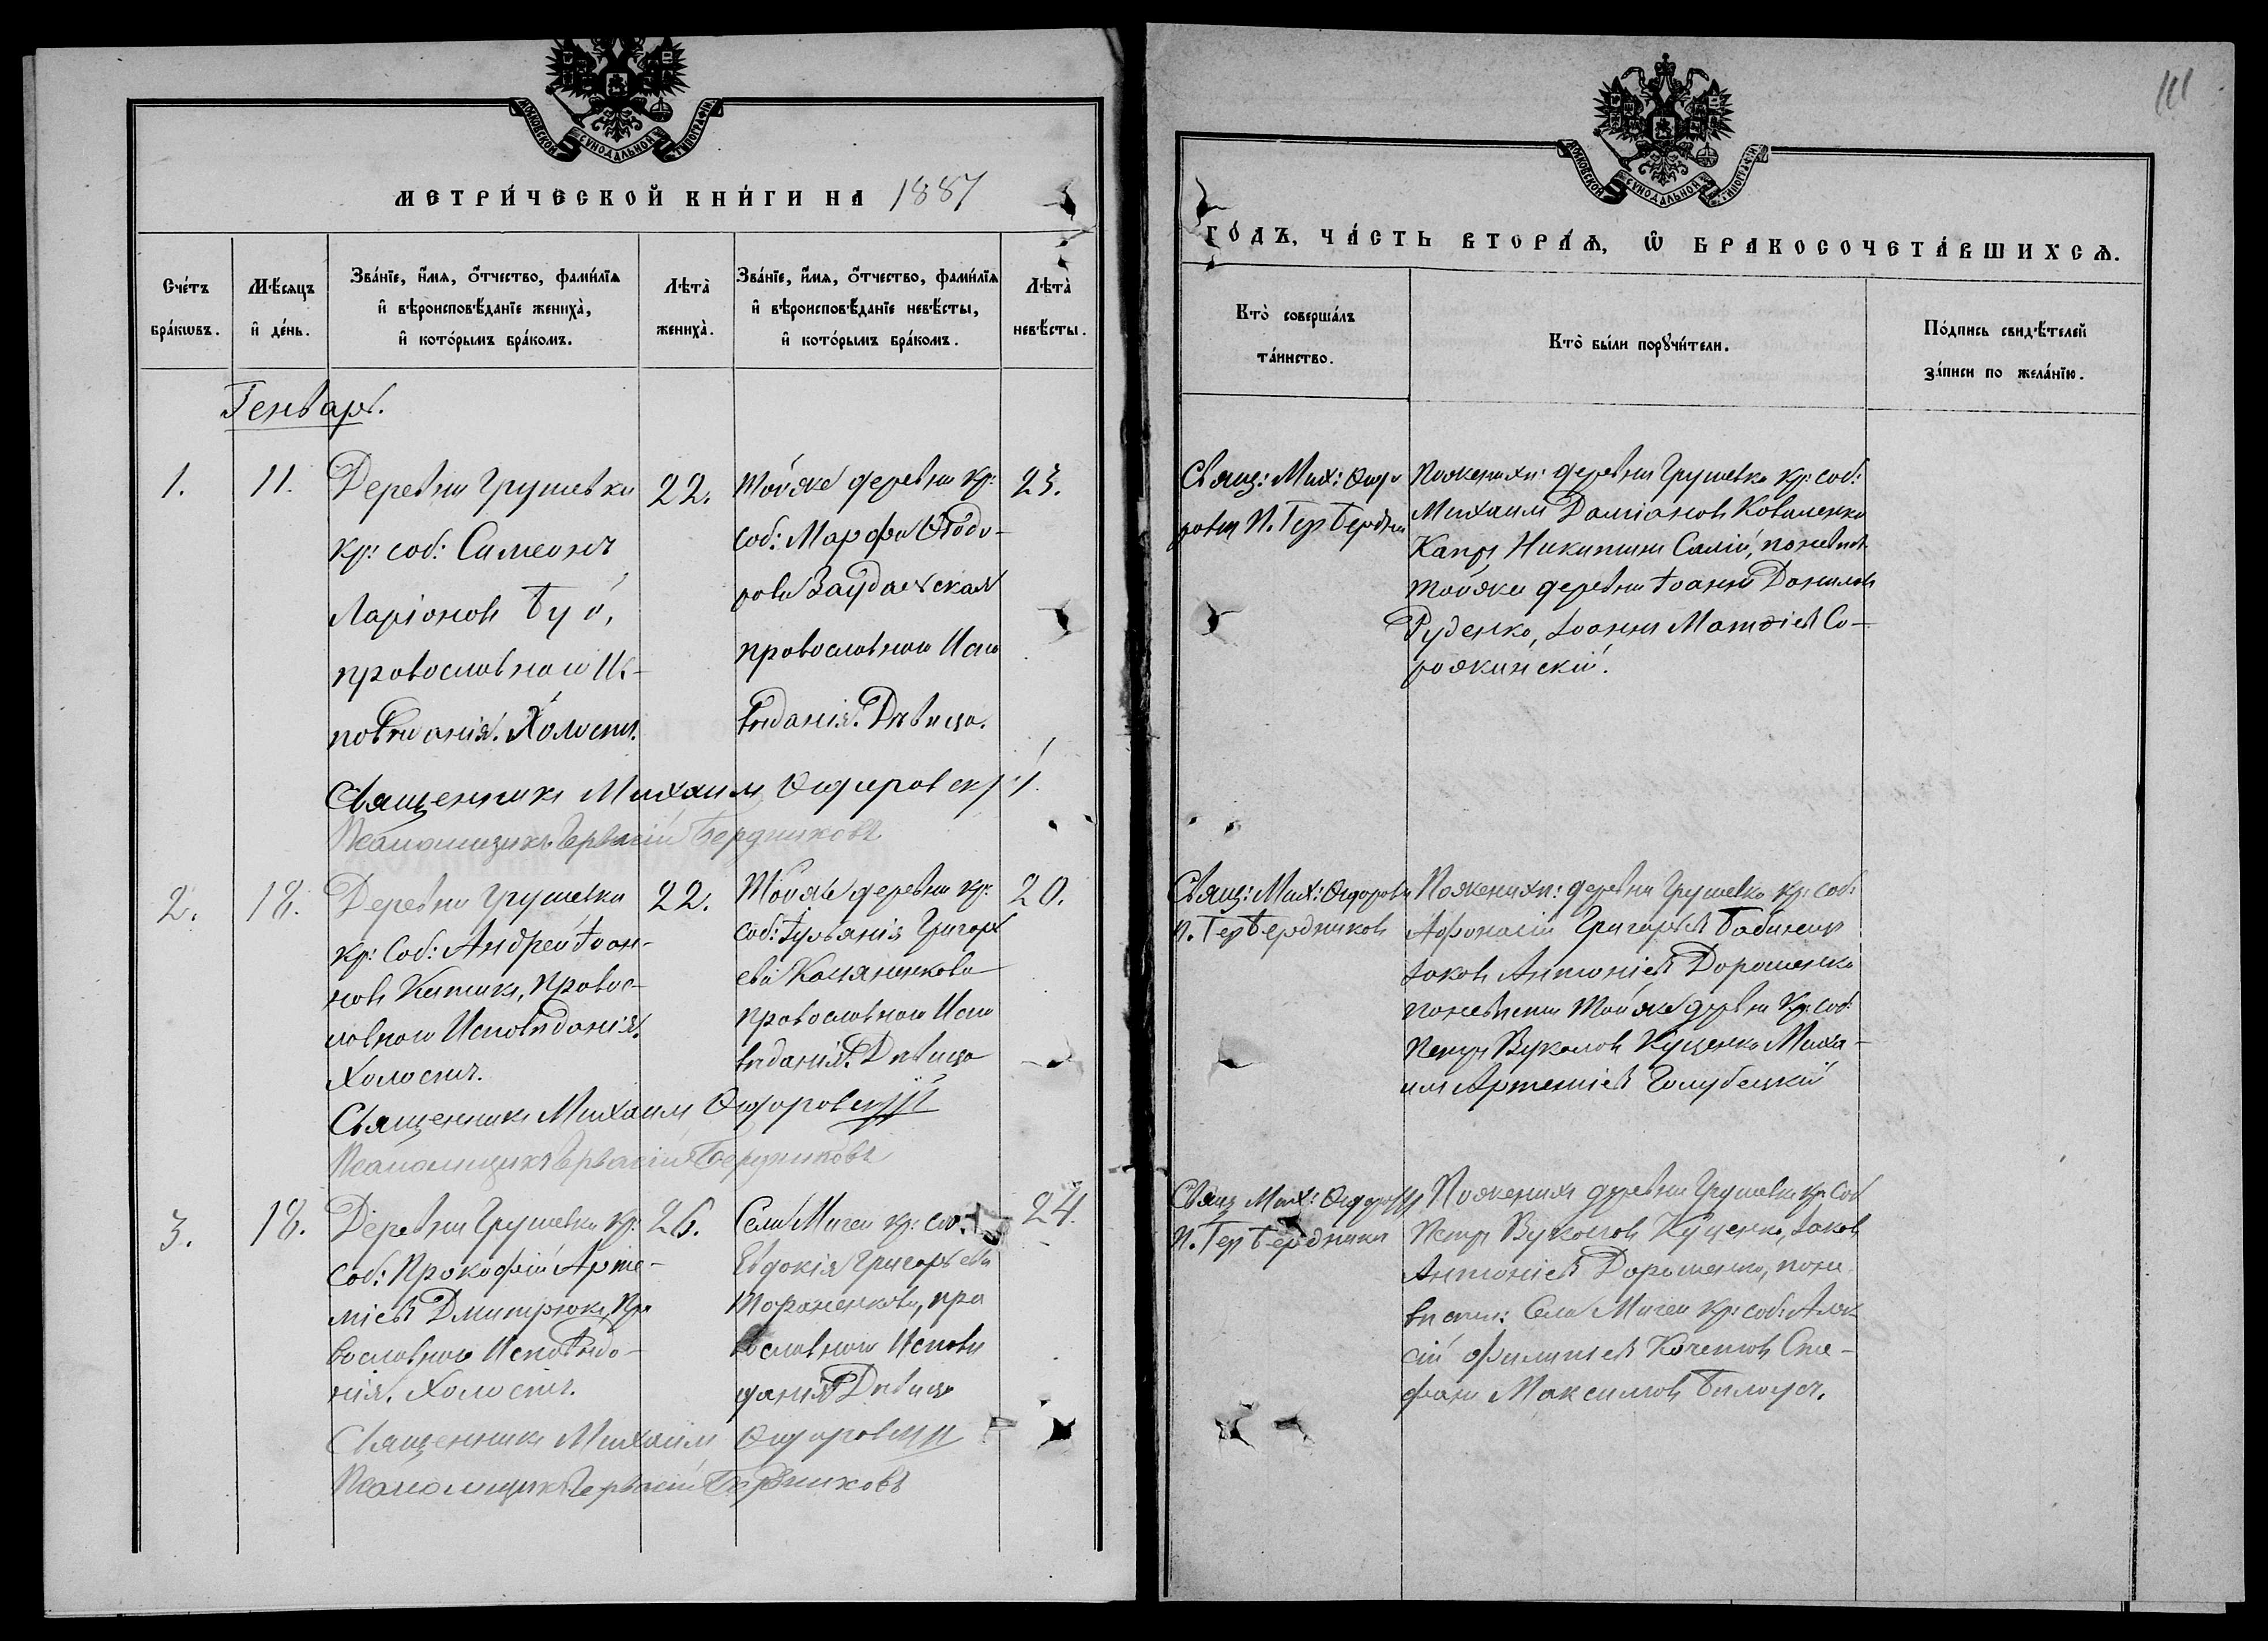 МОСКОВСКОЙ СѴНОДАЛЬНОЙ ТИПОГРАФІИ
МЕТРИ́ЧЕСКОЙ КНИ́ГИ НА 1887
Сче́тъ бра́кѡвъ.
Мѣ́сяцъ и҆ де́нь.
Зва́нїе, и҆́мѧ, ѻ҆́тчество, фами́лїѧ
и҆ вѣроисповѣ́данїе жениха̀,
и҆ кото́рымъ бра́комъ.
Лѣта̀ жениха̀.
Зва́нїе, и҆́мѧ, ѻ҆́тчество, фами́лїѧ
и҆ вѣроисповѣ́данїе невѣ́сты,
и҆ кото́рымъ бра́комъ.
Лѣта̀ невѣ́сты.
Генварь.
1.
11.
Деревни Грушевки
кр: соб: Симеонъ
Ларіоновъ Буй,
православнаго Ис-
повѣданія. Холостъ.
22.
Той же деревни кр:
соб: Марфа Ѳеодо-
рова
православнаго Испо
вѣданія. Дѣвица.
23.
Священникъ Михаилъ
Псаломщикъ Гервасій Бердниковъ
2.
18.
Деревни Грушевки
кр: Соб: Андрей Іоан-
новъ Китикъ, Правос-
лавнаго Исповѣданія.
Холостъ.
22.
Той же деревни кр:
соб: Іульянія Григорь
ева
православнаго Испо
вѣданія. Дѣвица
20.
Священникъ Михаилъ
Псаломщикъ Гервасій Бердниковъ
3.
18.
Деревни Грушевки кр:
соб: Прокофій Арте-
міевъ Дмитрюкъ, Пра
вославнаго Исповѣда-
нія. Холостъ.
26.
Села Мигеи кр: соб:
Евдокія Григорьева
Тараненкова, пра
вославнаго Исповѣ
данія Дѣвица
24.
Священникъ Михаилъ
Псаломщикъ Гервасій Бердниковъ
111
МОСКОВСКОЙ СѴНОДАЛЬНОЙ ТИПОГРАФІИ
ГО́ДЪ, ЧА́СТЬ ВТОРА́Ѧ, Ѽ БРАКОСОЧЕТА́ВШИХСѦ.
Кто̀ соверша́лъ та́инство.
Кто̀ бы́ли порꙋчи́тели.
По́дпись свидѣ́телей за́писи по жела́нїю.
Свящ: Мих:
П. Гер Бердни
По женихѣ: деревни Грушевки кр: соб:
Михаилъ Даміановъ Коваленко
Никитинъ Салій, по невѣстѣ
той же деревни Іоаннъ Даниловъ
Руденко, Іоаннъ Матѳіевъ Со-
рокинскій.
Свящ: Мих:
П. Гер Бердниковъ
По женихѣ: деревни Грушевки кр: соб:
Афонасій Григорьевъ Бабинецъ
Іаковъ Антоніевъ Дорошенко
по невѣстѣ той же деревни кр: соб:
Петръ Вуколовъ Куценко Миха-
илъ Артеміевъ Голубецкій
Свящ Мих:
П. Гер Бердники
По женихѣ деревни Грушевки кр: Соб
Петръ Вуколовъ Куценко, Іаковъ
Антоніевъ Дорошенко, по не
вѣстѣ: Села Мигеи кр: соб: Алек-
сій Филипіевъ Кочетовъ Сте-
фанъ Максимовъ Билоусъ.